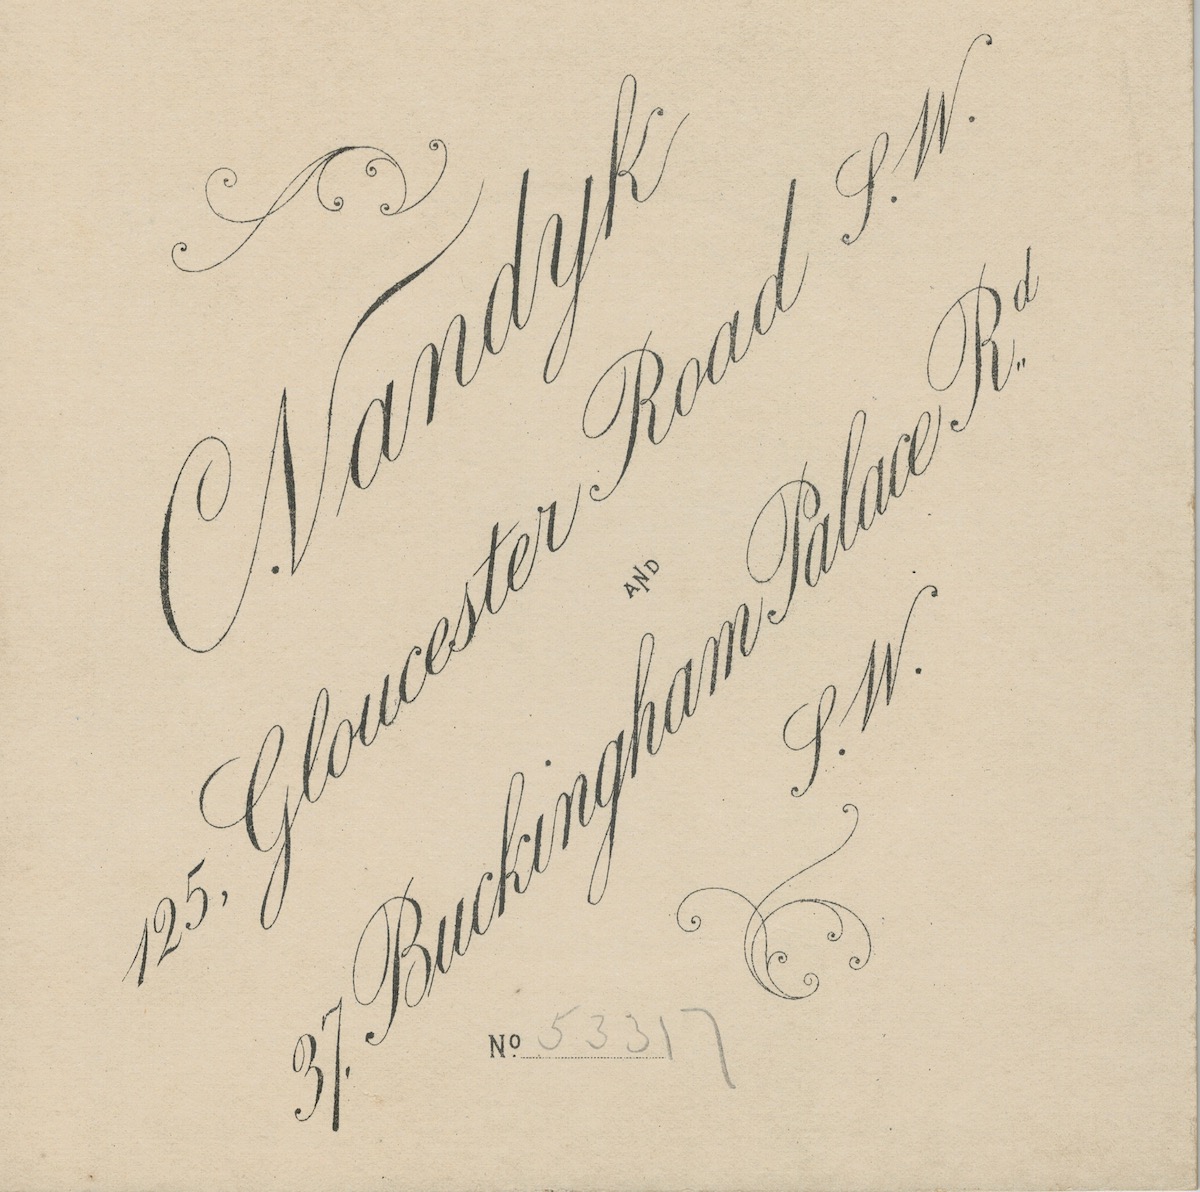 Vandyk
125, Gloucester Road S.W.
AND
37, Buckingham Palace Rd
S.W.
No. 53317